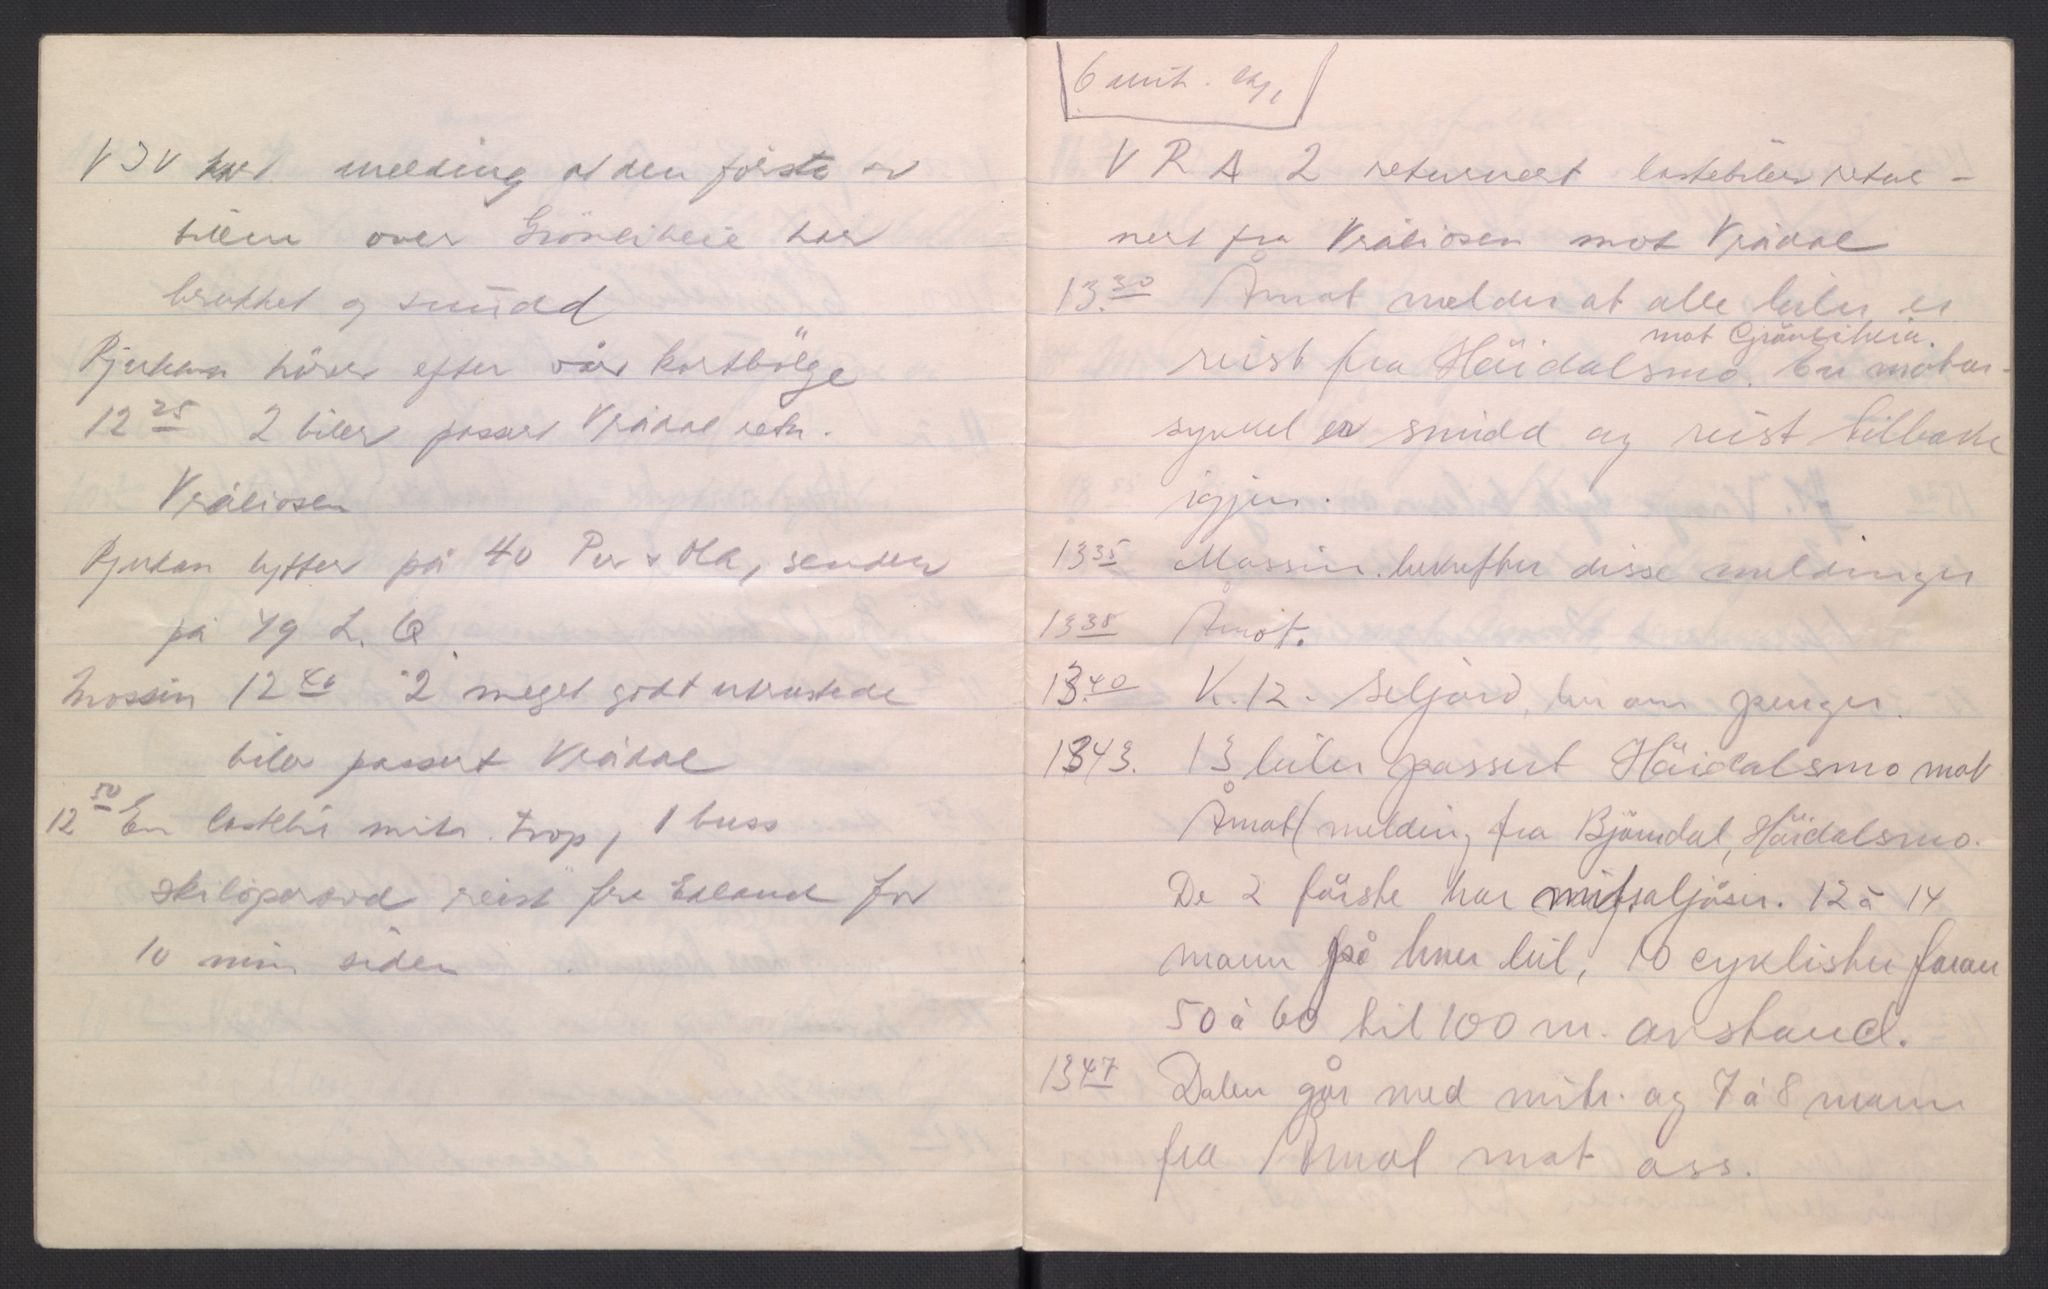 VJV har melding at den første av
bilene over Grönliheia har
brukket og snudd
Rjukan hører efter vår kortbölge
12 25 2 biler passert Vrådal retn.
Vråliosen
Rjukan lytter på 40 Per v Ola, sender
på 49 L. Q.
Mossin 12 40 2 meget godt utrustede
biler passert Vrådal
12 50 En lastebil mitr. trop, 1 buss
skilöparavd reist fra Edland for
10 min siden
6 mitr.
V R A 2 returnert lastebiler retur-
nert fra Vråliosen mot Vrådal
13.30 Åmot melder at alle biler er
mot Grönliheia.
reist fra Höidalsmo. En motor-
sykkel er snudd og reist tilbake
igjen.
13 35 Mossin. bekrefter disse meldinger
13 38 Åmot.
13.40 K. 12. Seljord, ber om penger.
1343. 13 biler passert Höidalsmo mot
Åmot (melding fra Björndal, Höidalsmo.
De 2 förste har mitraljöser. 12 à 14
mann på hver bil, 10 cyklister foran
50 à 60 til 100 m. avstand.
13 47 Dalen går med mitr. og 7 à 8 mann
fra Åmot mot oss.